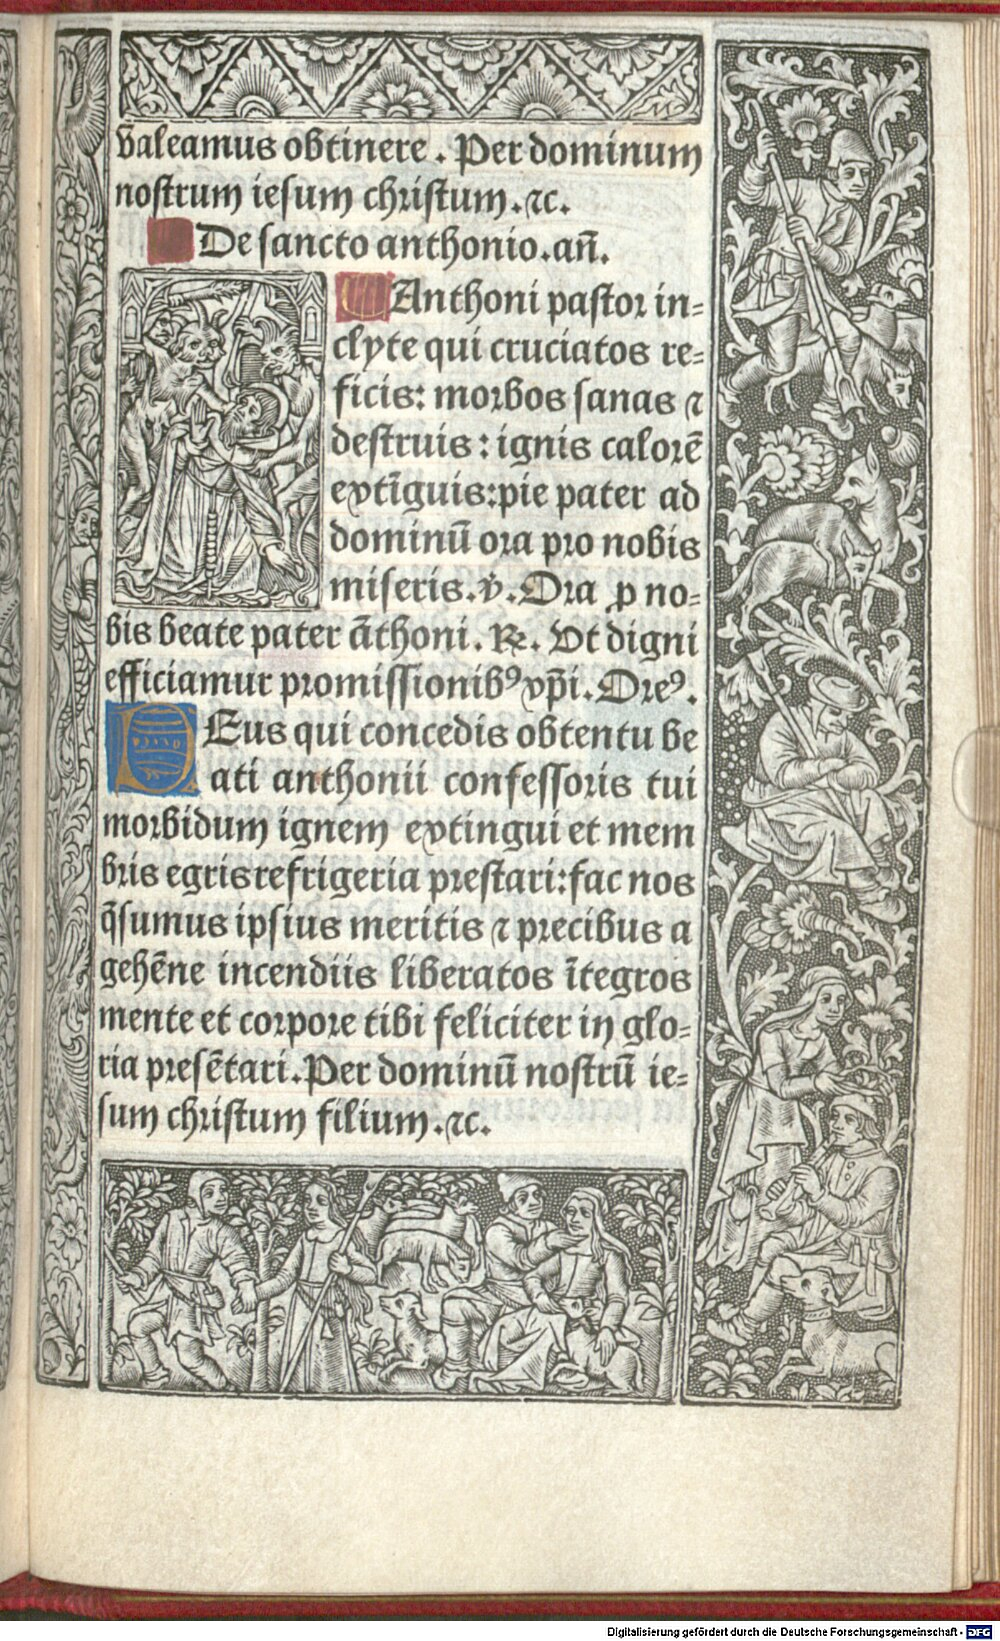 valeamus obtinere. Per dominum
nostrum iesum christum. ⁊c.
De sancto anthonio. an̄.
Anthoni pastor in=
clyte qui cruciatos re=
ficis: morbos sanas ⁊
destruis: ignis calorē
extīguis: pie pater ad
dominū ora pro nobis
miseris. v̄. Ora ꝓ no=
bis beate pater āthoni. ℞. Vt digni
efficiamur promissionibꝰ xp̄i. Oreꝰ.
DEus qui concedis obtentu be
ati anthonii confessoris tui
morbidum ignem extingui et mem
bris egris refrigeria prestari: fac nos
q̄sumus ipsius meritis ⁊ precibus a
gehēne incendiis liberatos ītegros
mente et corpore tibi feliciter in glo=
ria presētari. Per dominū nostrū ie=
sum christum filium. ⁊c.
Digitalisierung gefördert durch die Deutsche Forschungsgemeinschaft - DFG